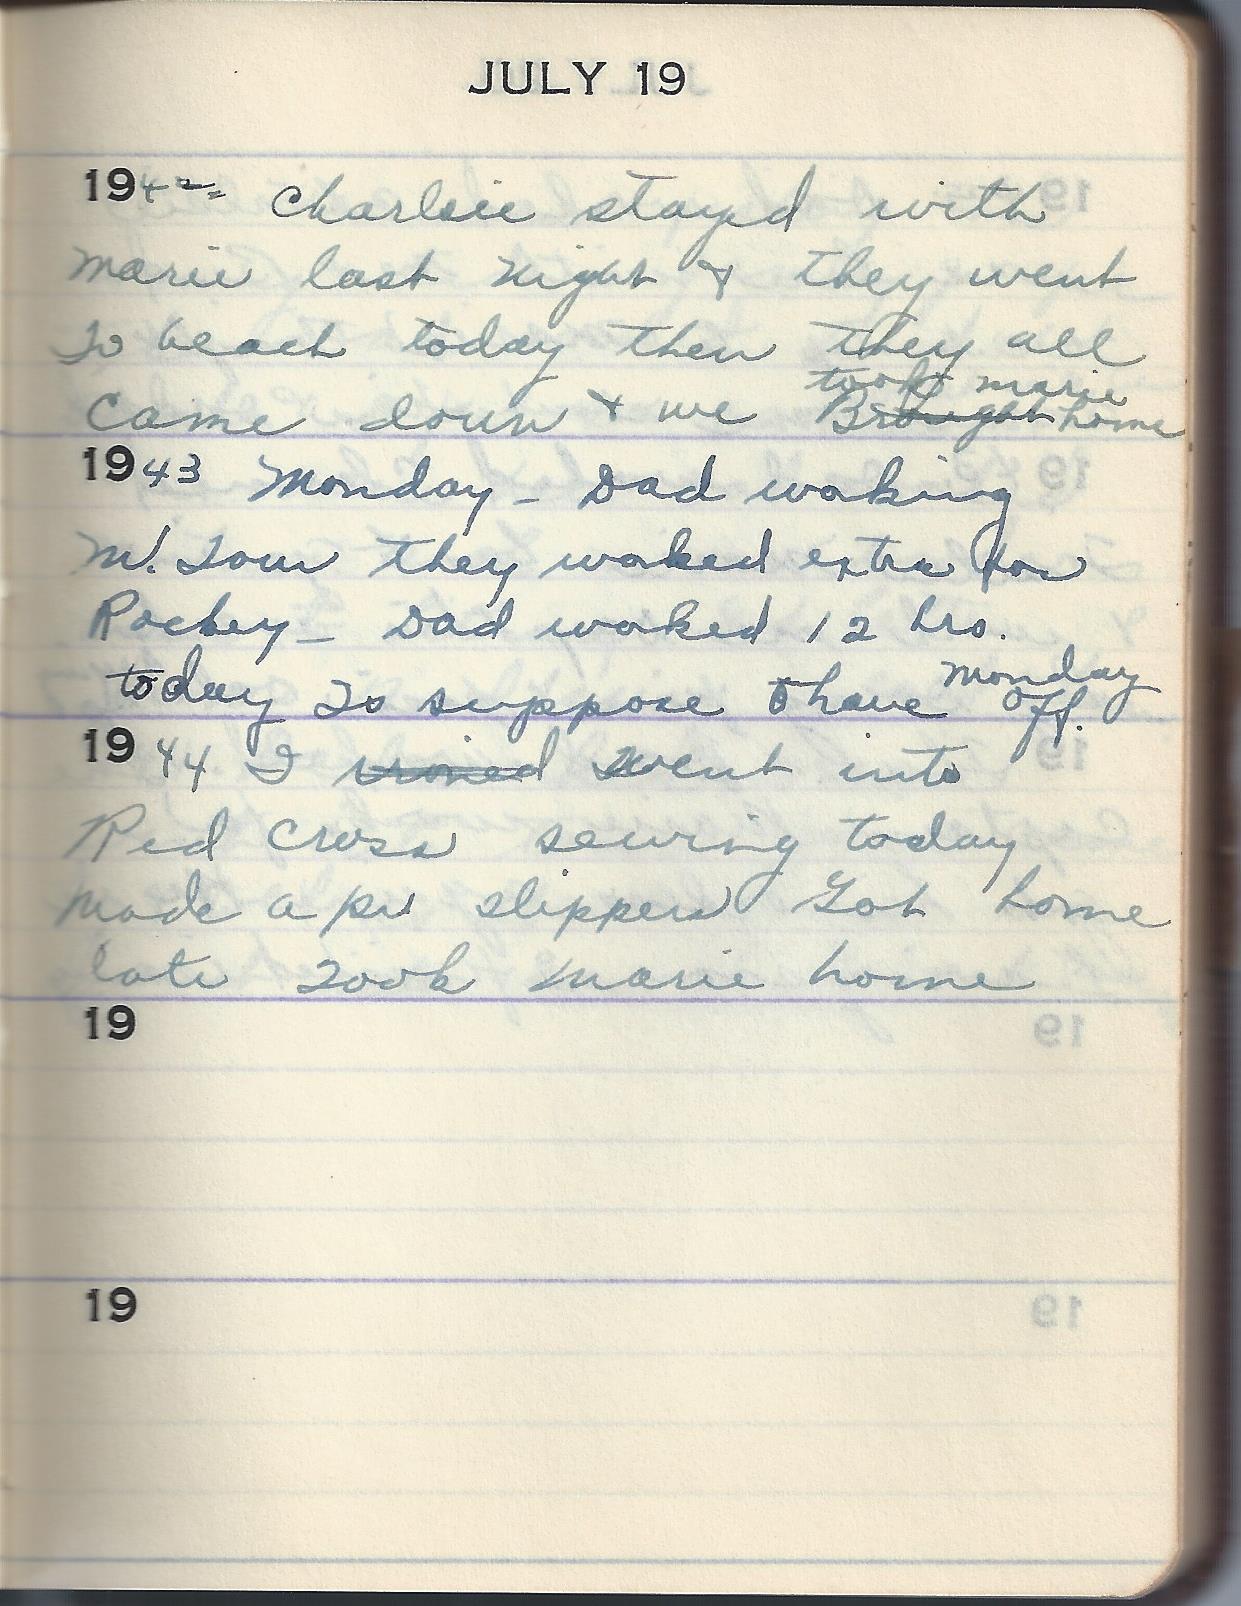 JULY 19
1942 Charlsie stayed with
Marie last night & they went
To beach today then they all
took marie
came down & we Brought home
1943 Monday - Dad working
M. Tom they worked extra for
Rockey - Dad worked 12 hrs.
today Is suppose to have Monday
off.
1944 I ironed went into
Red Cross sewing today
made a pr slippers Got home
late Took Marie home
19
19